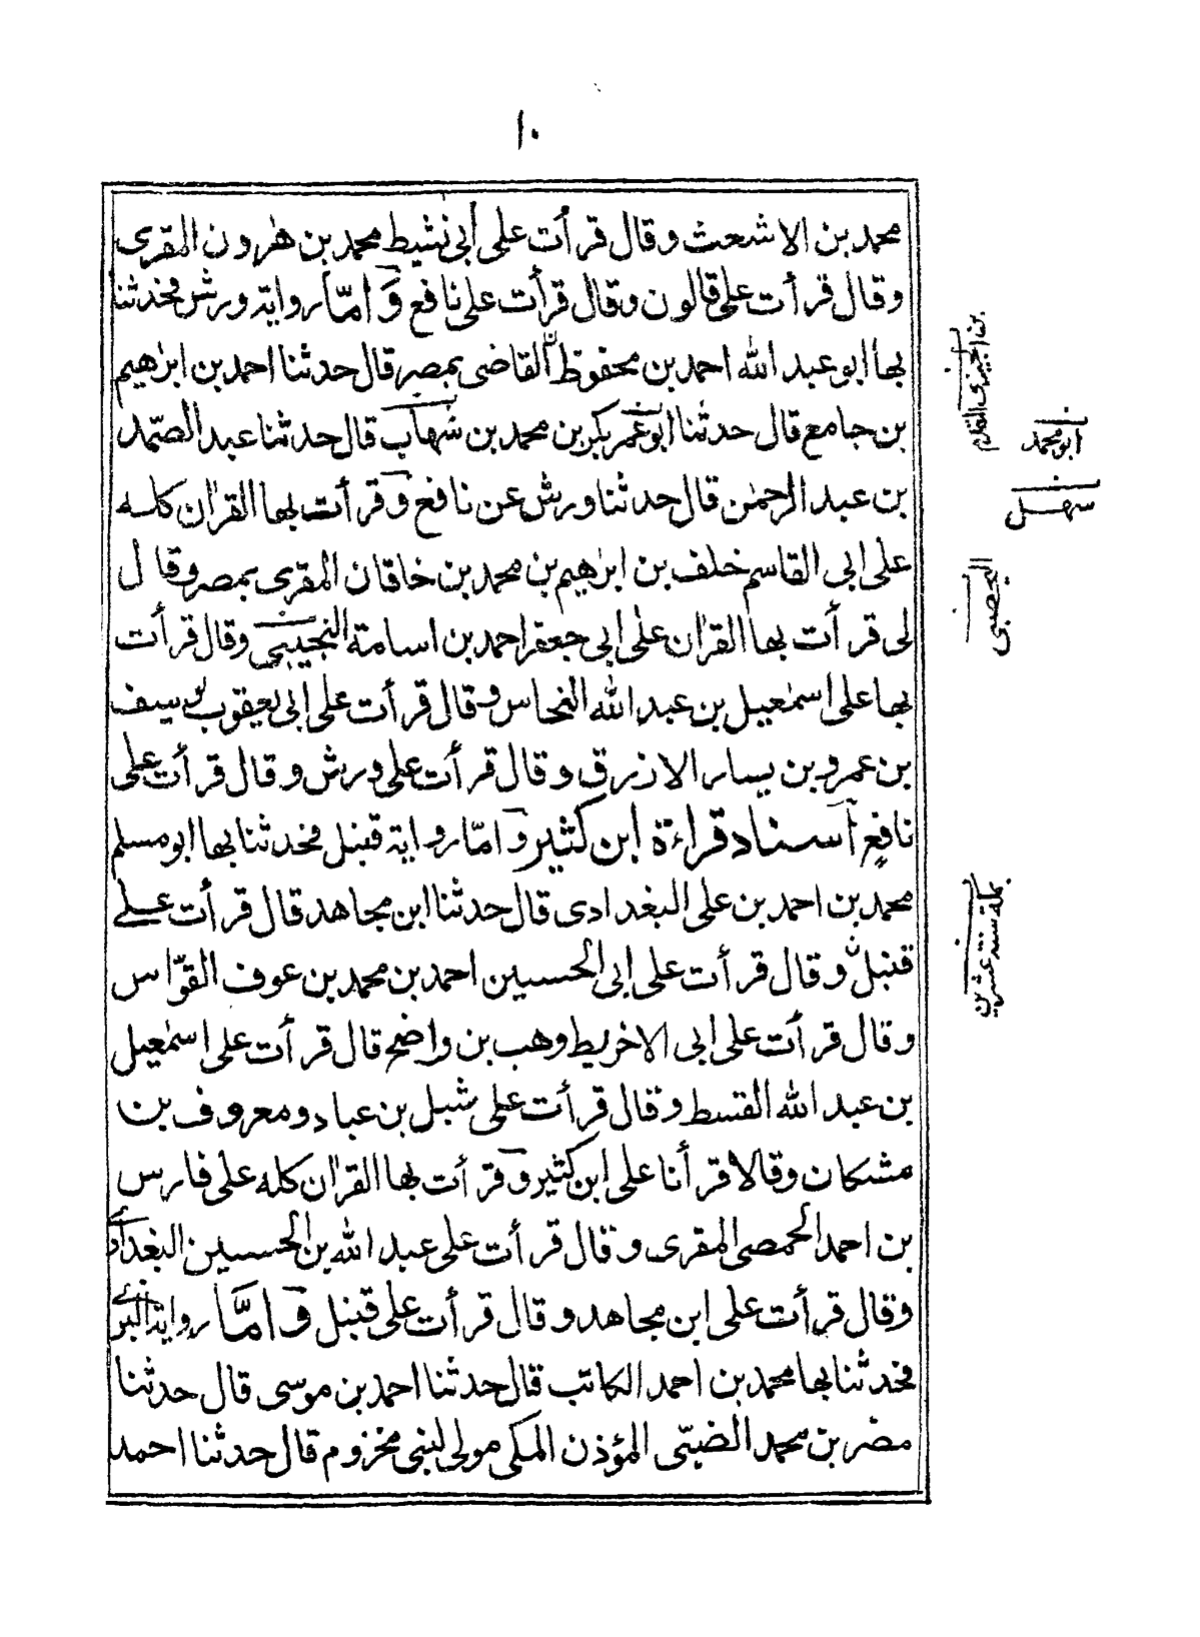 ١٠
محمد بن الاشعث وقال قرأت على أبى نشيط محمد بن هٰرون المقرى
وقال قرأت على قالون وقال قرأت على نافع وَامّا رواية ورش فحدثنا
بها ابو عبد الله احمد بن محفوظ القاضى بمصر قال حدثنا احمد بن ابرٰهيم
بن جامع قال حدثنا ابو عمر بكر بن محمد بن شهاب قال حدثنا عبد الصّمد
بن عبد الرحمٰن قال حدثنا ورش عن نافع وقرأت بها القراٰن كله
على ابى القاسم خلف بن ابرٰهيم بن محمد بن خاقان المقرى بمصر وقال
لى قرأت بها القراٰن على ابى جعفر احمد بن اسامة النجيبى وقال قرأت
بها على اسمٰعيل بن عبد الله النحاس وقال قرأت على ابى يعقوب يوسف
بن عمرو بن يسار الازرق وقال قرأت على ورش وقال قرأت على
نافعٍ اسناد قراءة ابن كثير وَامّا رواية قنبل فحدثنا بها ابو مسلم
محمد بن احمد بن على البغدادى قال حدثنا ابن مجاهد قال قرأت على
قنبل وقال قرأت على ابى الحسين احمد بن محمد بن عوف القوّاس
وقال قرأت على ابى الاخريط وهب بن واضح قال قرأت على اسمٰعيل
بن عبد الله القسط وقال قرأت على شبل بن عباد ومعروف بن
مشكان وقالا قرأنا على ابن كثير وقرأت بها القراٰن كله على فارس
بن احمد الحمصى المقرى وقال قرأت على عبد الله بن الحسين البغدادى
وقال قرأت على ابن مجاهد وقال قرأت على قنبل وَامَّا رواية البزى
فحدثنا بها محمد بن احمد الكاتب قال حدثنا احمد بن موسى قال حدثنا
مضر بن محمد الضبّى المؤذن المكى مولى لبنى مخزوم قال حدثنا احمد
ابو محمد
سهل